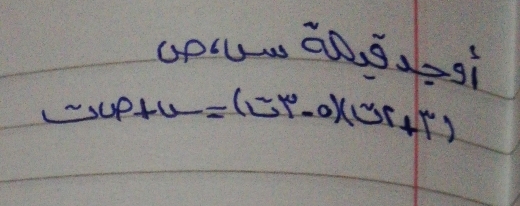 أوجد قيمة س،ص
(٣+٢ت)(٥-٣ت)=س+ص ت